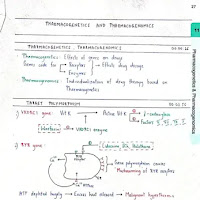 27
PHARMACOGENETICS AND PHARMACOGENOMICS
PHARMACOGENETICS, PHARMACOGENOMICS
00:00:16
Pharmacogenetics : Effects of genes on drugs
Genes code for → Receptor → Effects drug dosage
Enzymes
Pharmacogenomics : Individualization of drug therapy based on
Pharmacogenetics
TARGET POLYMORPHISM
00:03:73
VKORC1 gene : Vit K → Active Vit K → γ-carboxylation
Factors II, VII, IX, X
Warfarin VKORC1 enzyme
RYR gene :
Gene polymorphism causes
Malfunctioning of RYR receptors
ATP depleted largely → Causes heat released → Malignant hyperthermia
Pharmacogenetics & Pharmacogenomics